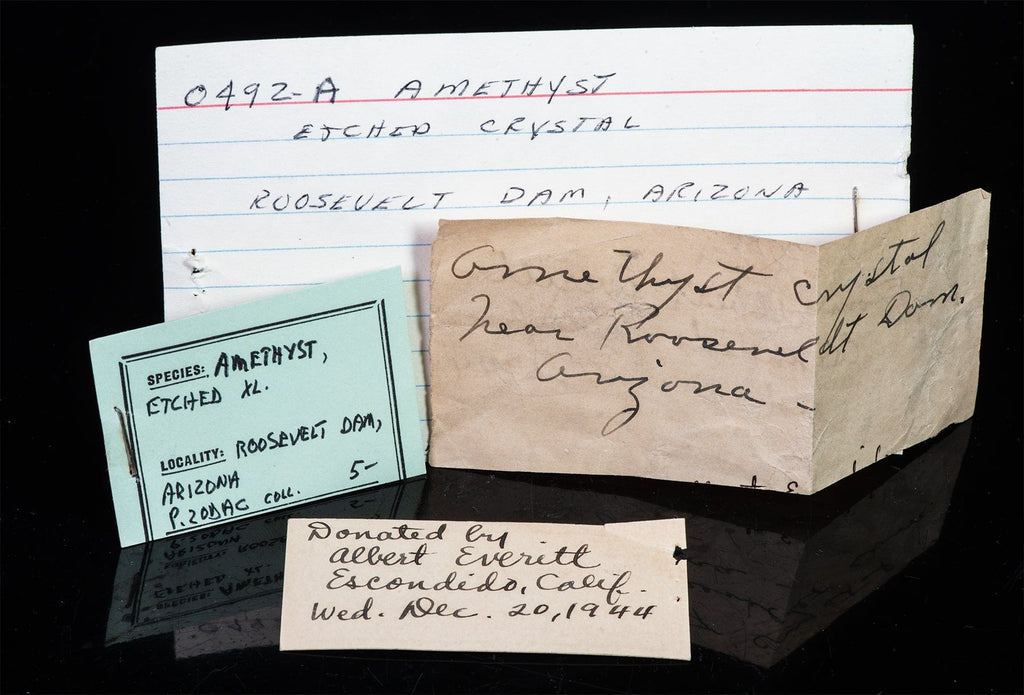 0492-A AMETHYST
ETCHED CRYSTAL
ROOSEVELT DAM, ARIZONA
Amethyst crystal
Near Roosevelt Dam.
Arizona -
SPECIES: AMETHYST,
ETCHED XL.
LOCALITY: ROOSEVELT DAM,
ARIZONA 5-
P. ZODAC COLL.
Donated by
Albert Everitt
Escondido, Calif.
Wed. Dec. 20, 1944